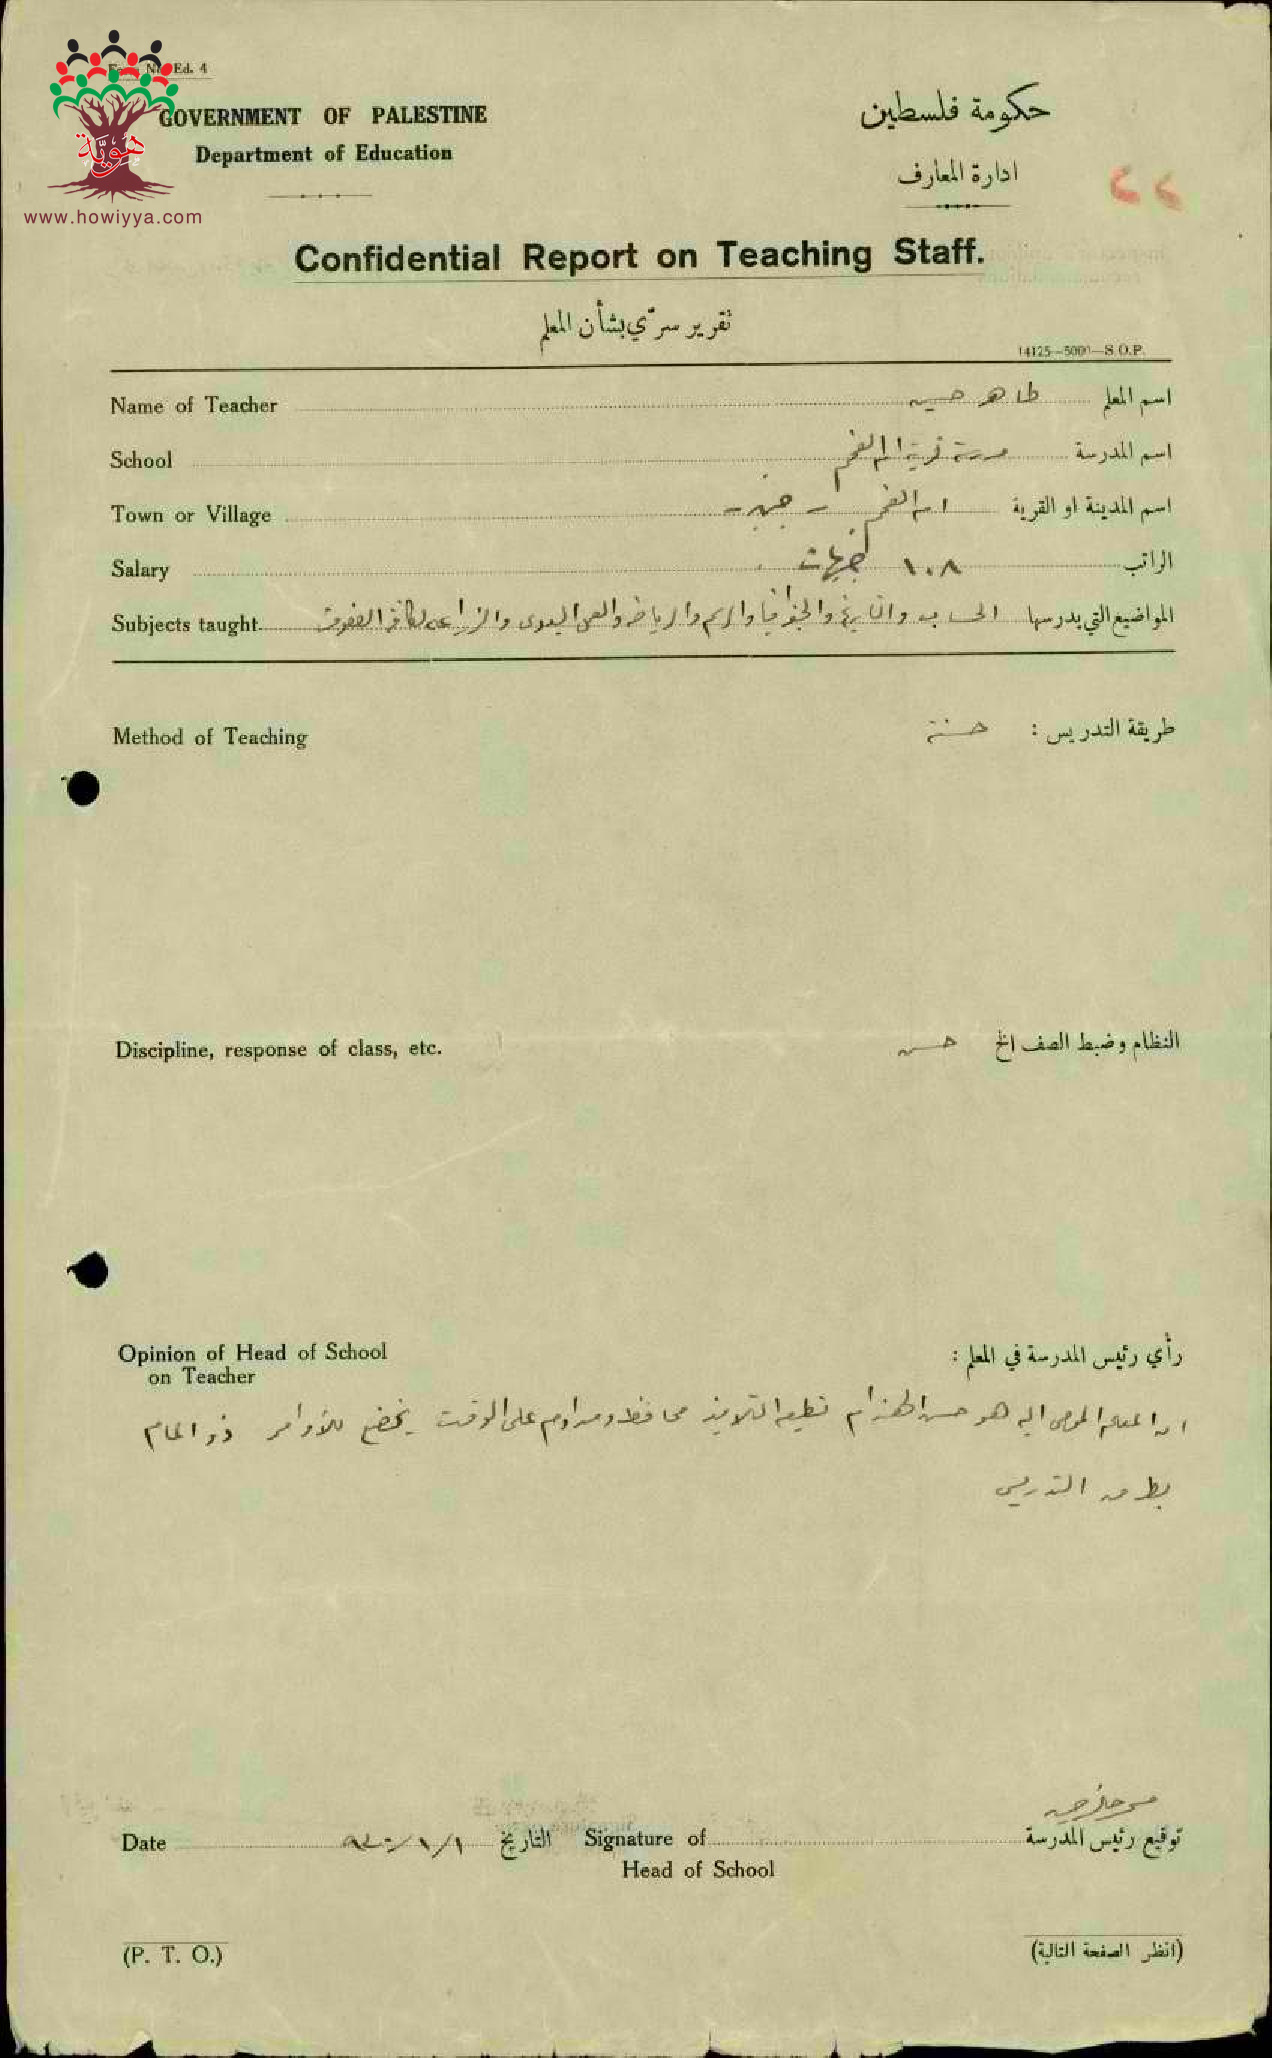 Form No. Ed. 4
GOVERNMENT OF PALESTINE
Department of Education
حكومة فلسطين
ادارة المعارف
هوية
www.howiyya.com
٢٢
Confidential Report on Teaching Staff.
تقرير سرّي بشأن المعلم
14125—5000—S.O.P.
Name of Teacher طاهر حسين اسم المعلم
School مدرسة قرية ام الفحم اسم المدرسة
Town or Village ام الفحم - جنين - اسم المدينة او القرية
Salary ١٠٨ جنيهات الراتب
Subjects taught الحساب والتاريخ والجغرافيا والرسم والرياضه والعمل اليدوي والزراعه لكافة الصفوف المواضيع التي يدرسها
Method of Teaching طريقة التدريس : حسنة
Discipline, response of class, etc. النظام وضبط الصف الخ حسن
Opinion of Head of School
on Teacher
رأي رئيس المدرسة في المعلم :
ان المعلم المومى اليه هو حسن الهندام نظيف التلاميذ محافظ ومداوم على الوقت يخضع للأوامر ذو المام
بطرق التدريس
Date ١/١/ التاريخ Signature of توقيع رئيس المدرسة
Head of School
(P. T. O.) (انظر الصفحة التالية)